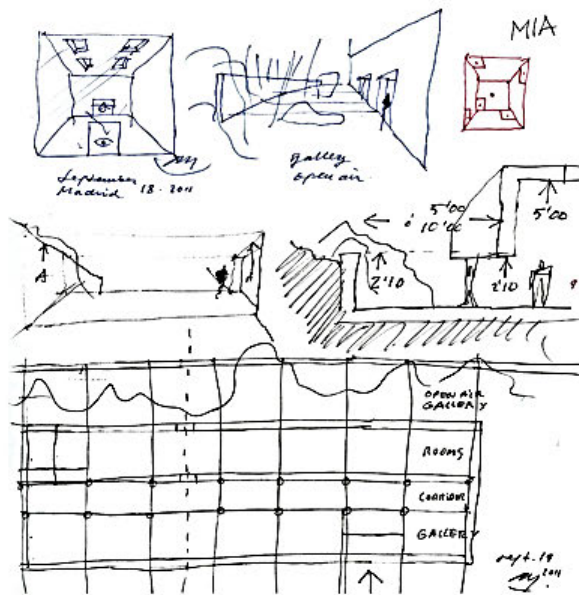 MIA
September
Madrid 18 - 2011
gallery
open air
5'00
10'00
5'00
2'10
2'10
A
OPEN AIR
GALLERY
ROOMS
CORRIDOR
GALLERY
sept. 19
2011